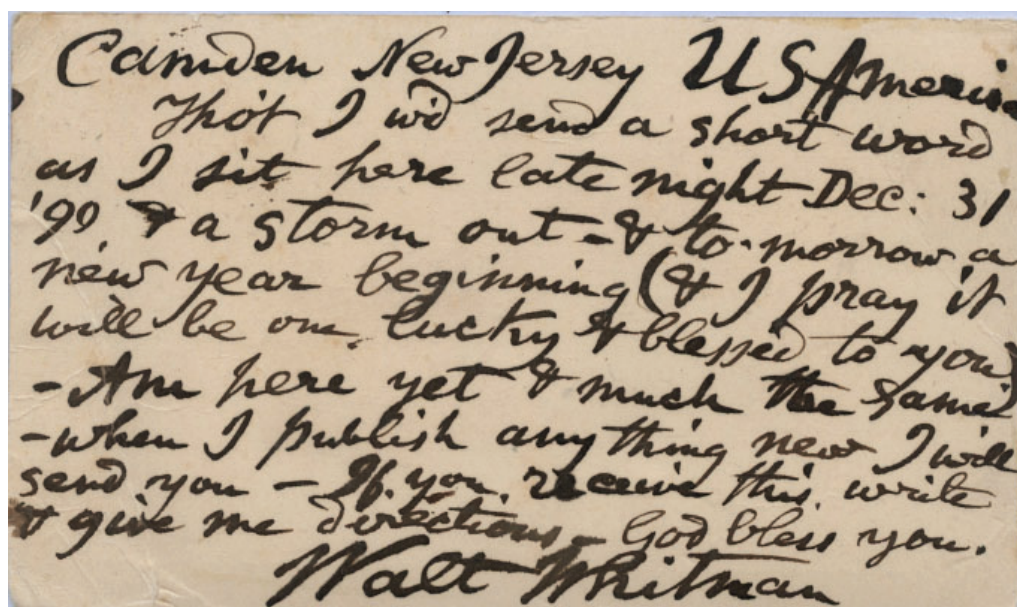 Camden New Jersey US America
Thot I w'd send a short word
as I sit here late night Dec: 31
'90, & a storm out - & to-morrow a
new year beginning (& I pray it
will be one lucky & blessed to you)
- Am here yet & much the same
- when I publish anything new I will
send you - If you receive this write
& give me directions - God bless you.
Walt Whitman